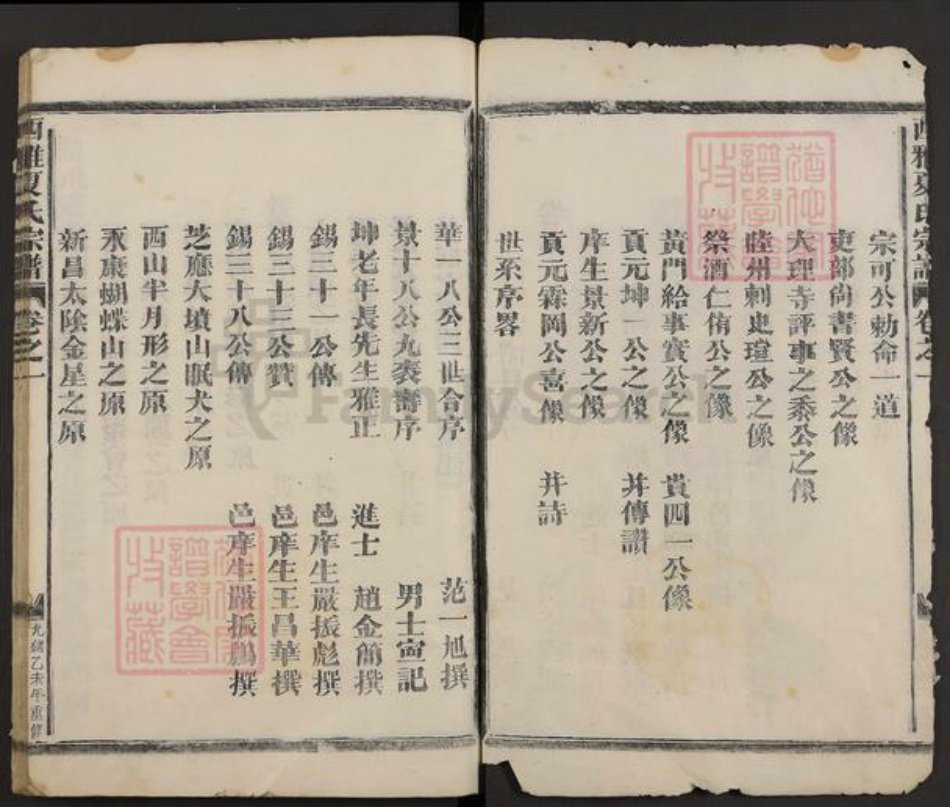 西雅夏氏宗譜 卷之一
宗可公勅命一道
吏部尙書賢公之像
大理寺評事之黍公之像
睦州刺史瑄公之像
祭酒仁侑公之像
黃門給事實公之像 貴四一公像
貢元坤一公之像 并傳讃
庠生景新公之像
貢元霖岡公喜像 并詩
世系序畧
華一八公三世合序 范一旭撰
景十八公九袠壽序 男士寅記
坤老年長先生雅正 進士 趙金簡撰
錫三十一公傳 邑庠生嚴振彪撰
錫三十三公贊 邑庠生王昌華撰
錫三十八公傳 邑庠生嚴振鵬撰
芝應大墳山眠犬之原
西山半月形之原
永康蝴蝶山之原
新昌太陰金星之原
西雅夏氏宗譜 卷之一
光緒乙未年重修
FamilySearch